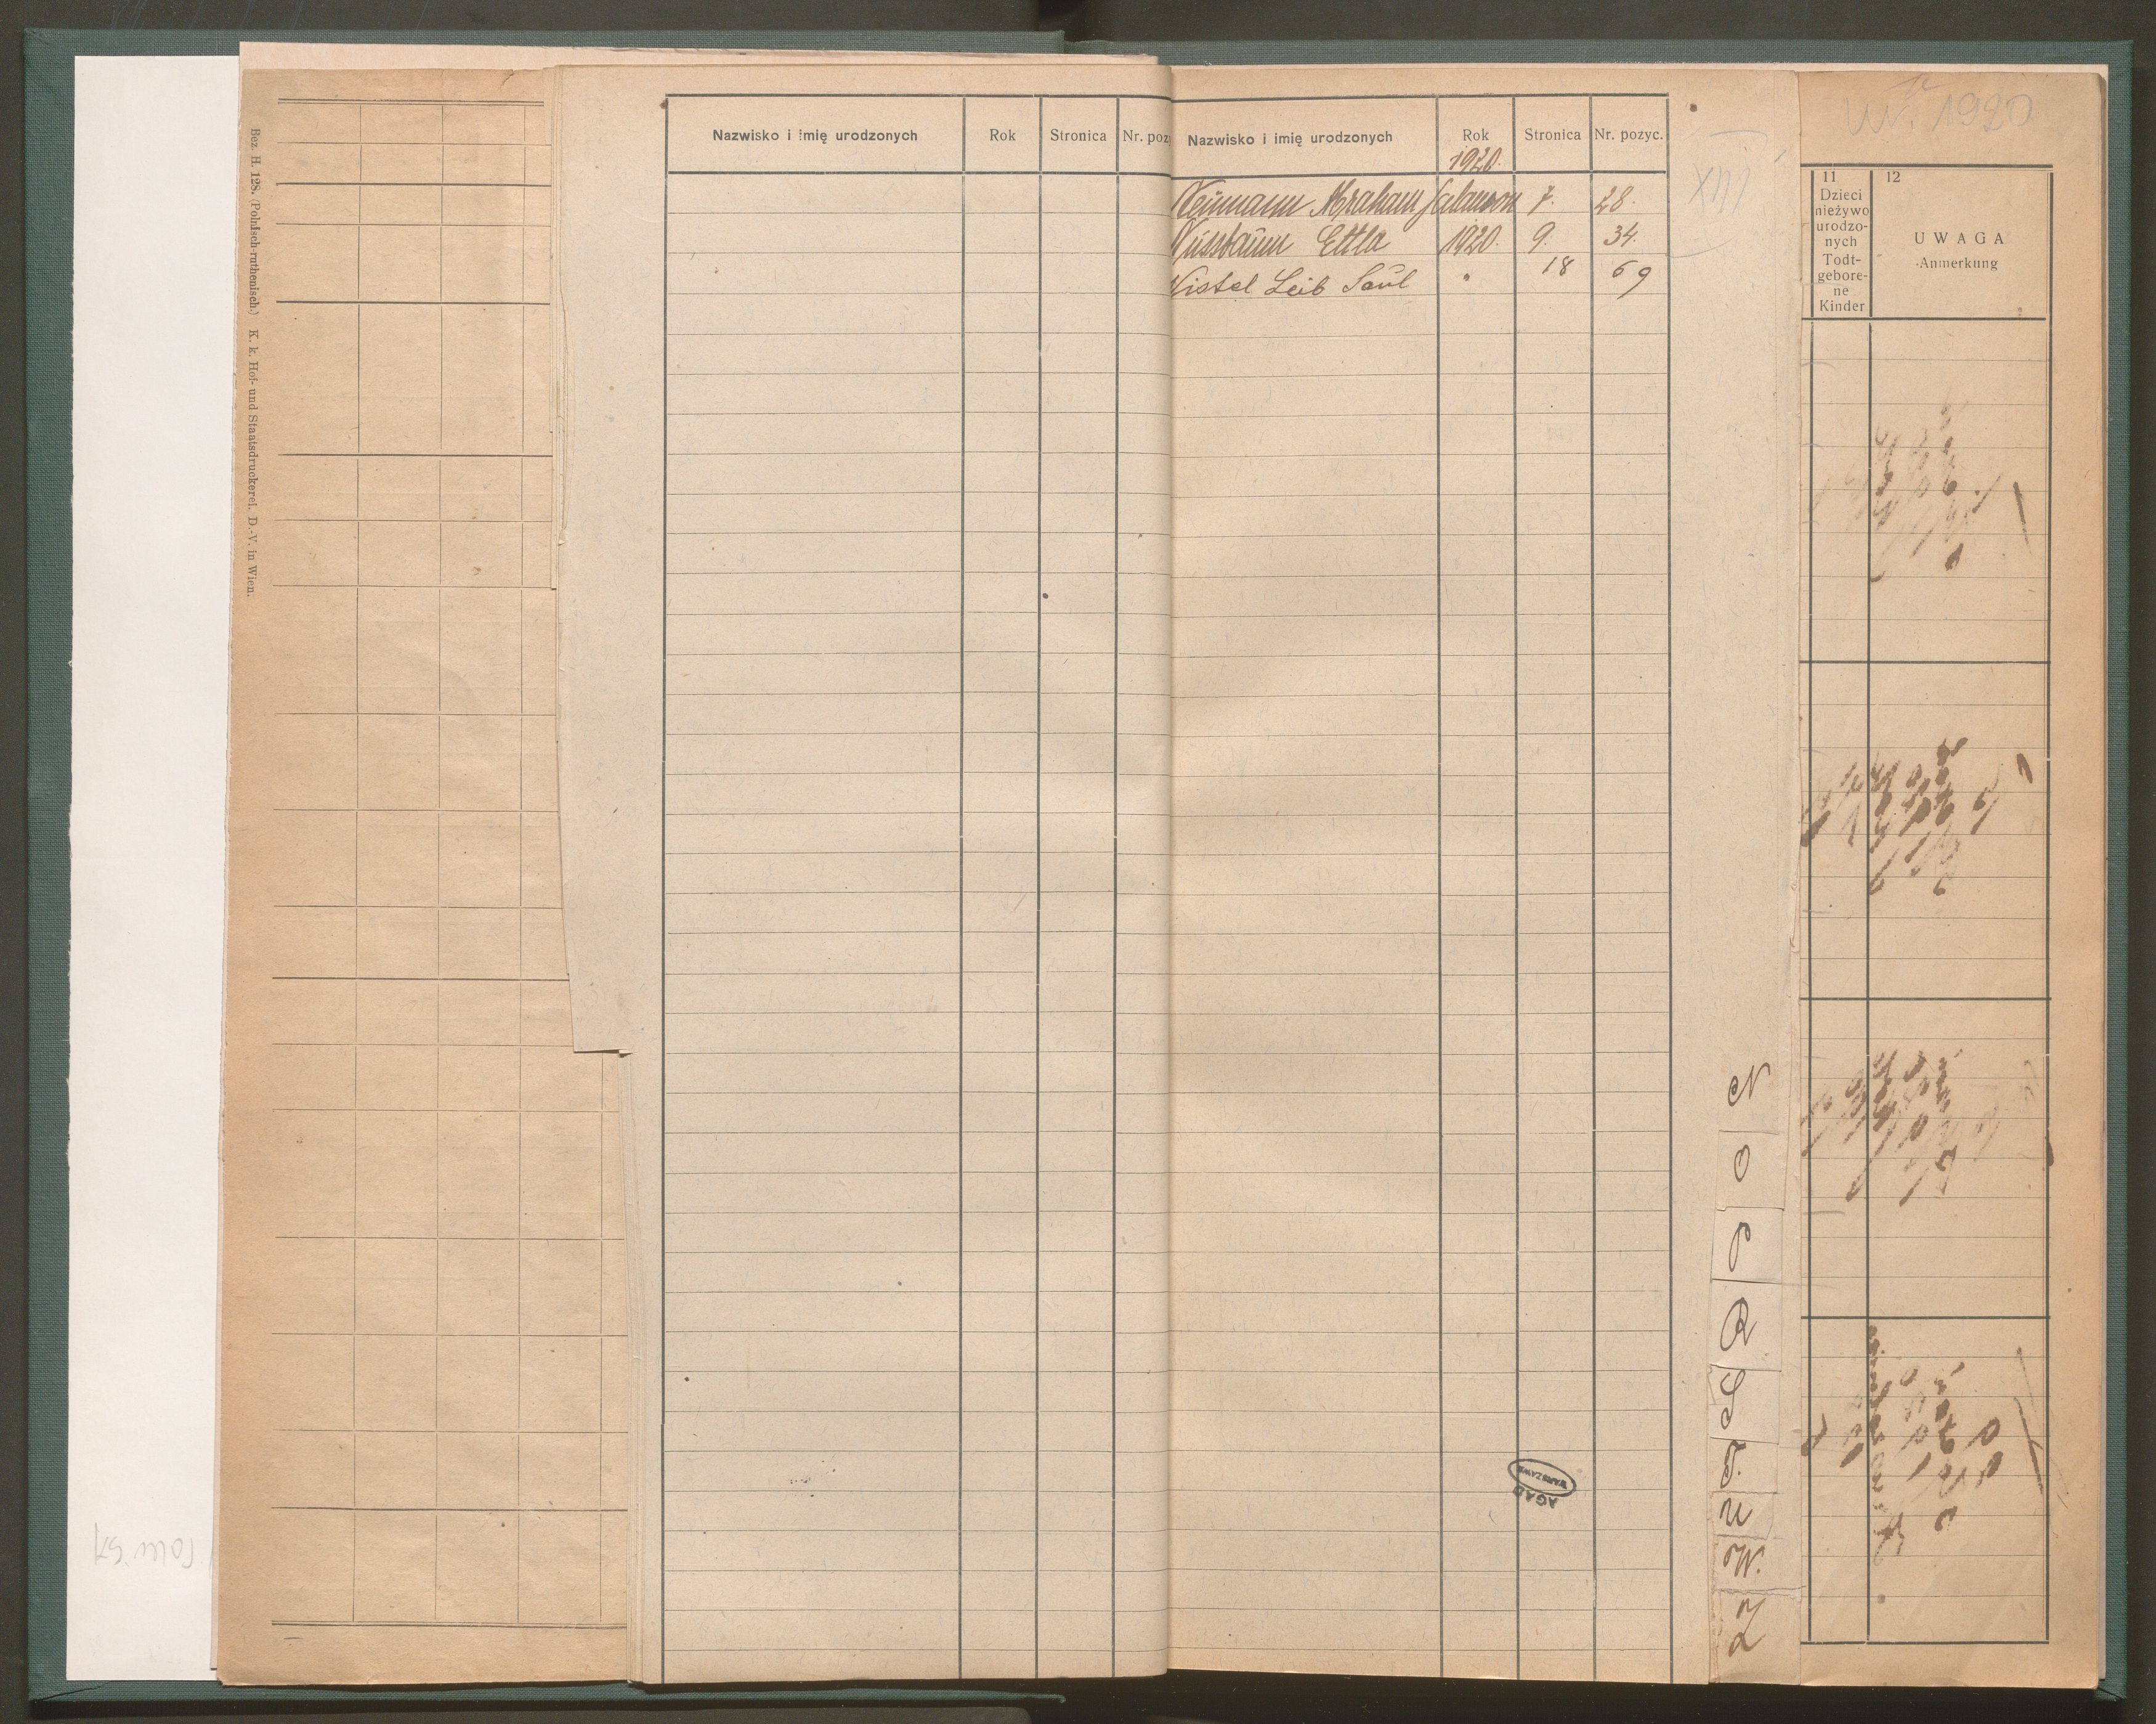 Bez. H. 128. (Polnisch-ruthenisch.) K. k. Hof- und Staatsdruckerei. D.-V. in Wien.
Nazwisko i imię urodzonych Rok Stronica Nr. poz
Nazwisko i imię urodzonych Rok Stronica Nr. pozyc.
1920.
Neumann Abraham Salamon 7. 28.
Nussbaum Ettla 1920. 9. 34.
Nistel Leib Saul " 18 69
XIII
N
O
P
R
S
T.
U
W.
Z
AGAD
WARSZAWA
1920
11
Dzieci
nieżywo
urodzo-
nych
Todt-
gebore-
ne
Kinder
12
UWAGA
Anmerkung